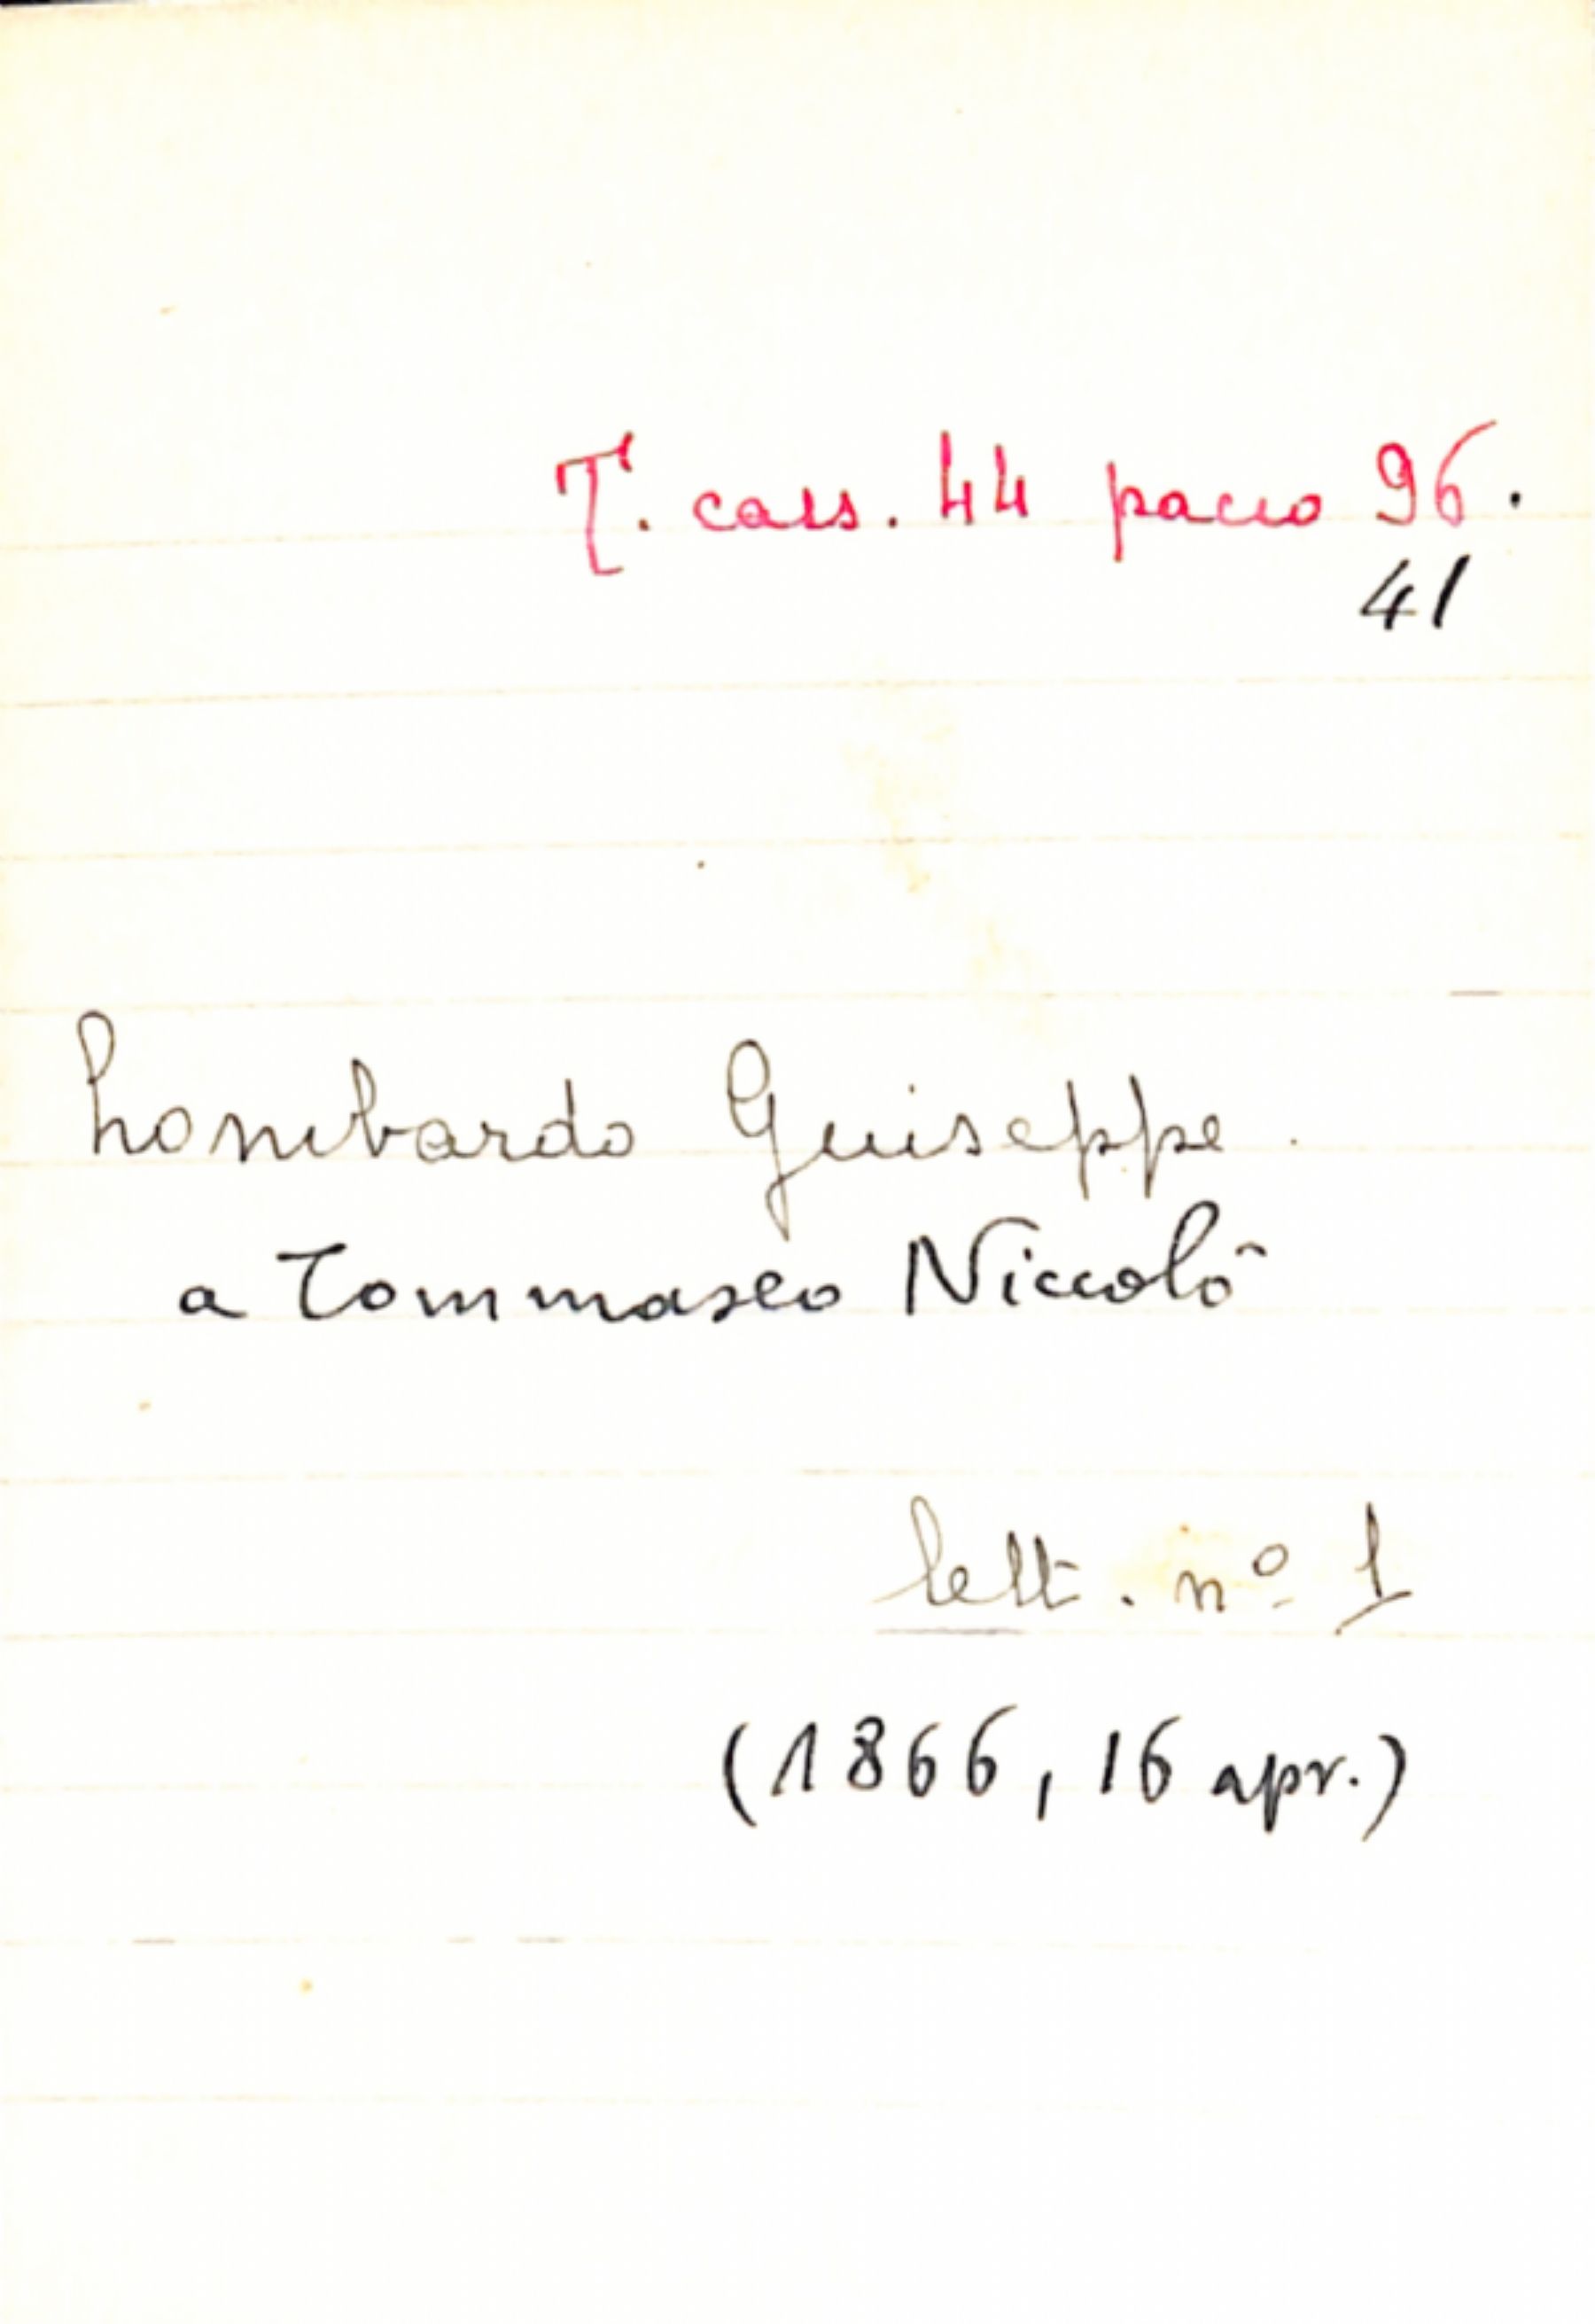 T. cass. 44 pacco 96.
41
Lombardo Giuseppe.
a Tommaseo Niccolò
lett. nº 1
(1866, 16 apr.)